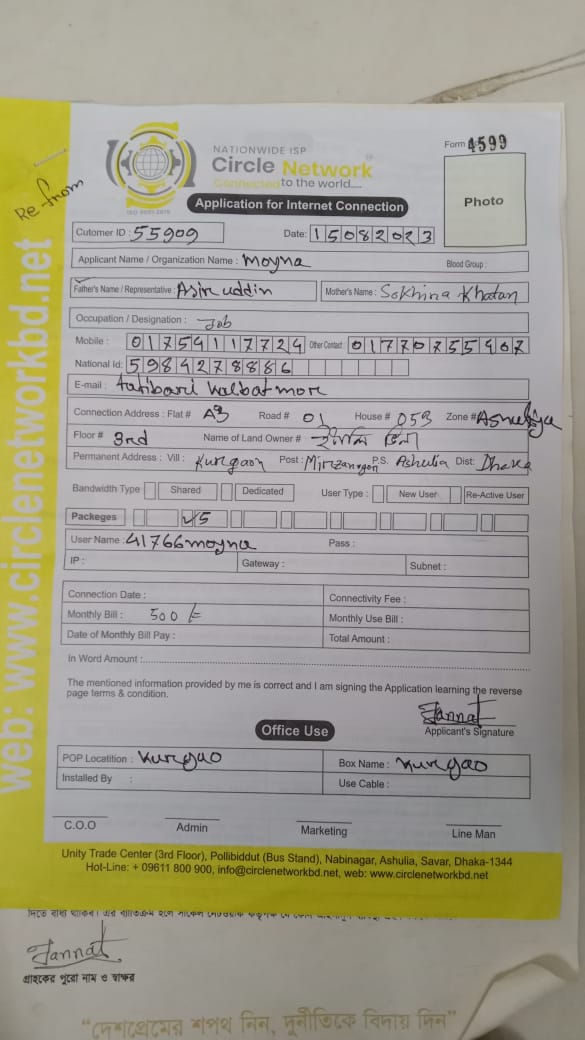 NATIONWIDE ISP
Circle Network
Connected to the world....
ISO 9001:2015
Form # 4599
Re from
Photo
Application for Internet Connection
Cutomer ID : 55909
Date: 15082023
Applicant Name / Organization Name : Moyna
Blood Group :
Father's Name / Representative : Asir uddin
Mother's Name : Sokhina Khatan
Occupation / Designation : Job
Mobile : 01754117724 Other Contact 01770755907
National Id: 5984278886
E-mail :
Connection Address : Flat # A3 Road # 01 House # 053 Zone # Ashuliya
Floor # 3rd Name of Land Owner #
Permanent Address : Vill : Kurgaon Post : Mirzanagon P.S. Ashulia Dist: Dhaka
Bandwidth Type Shared Dedicated User Type : New User Re-Active User
Packeges 5
User Name : 41766moyna Pass :
IP : Gateway : Subnet :
Connection Date : Connectivity Fee :
Monthly Bill : 500 Monthly Use Bill :
Date of Monthly Bill Pay : Total Amount :
In Word Amount :
The mentioned information provided by me is correct and I am signing the Application learning the reverse
page terms & condition.
Jannat
Applicant's Signature
Office Use
POP Locatition : Kurgao Box Name : Kurgao
Installed By : Use Cable :
C.O.O Admin Marketing Line Man
Unity Trade Center (3rd Floor), Pollibiddut (Bus Stand), Nabinagar, Ashulia, Savar, Dhaka-1344
Hot-Line: + 09611 800 900, info@circlenetworkbd.net, web: www.circlenetworkbd.net
web: www.circlenetworkbd.net
Jannat
গ্রাহকের পুরো নাম ও স্বাক্ষর
“দেশপ্রেমের শপথ নিন, দুর্নীতিকে বিদায় দিন”